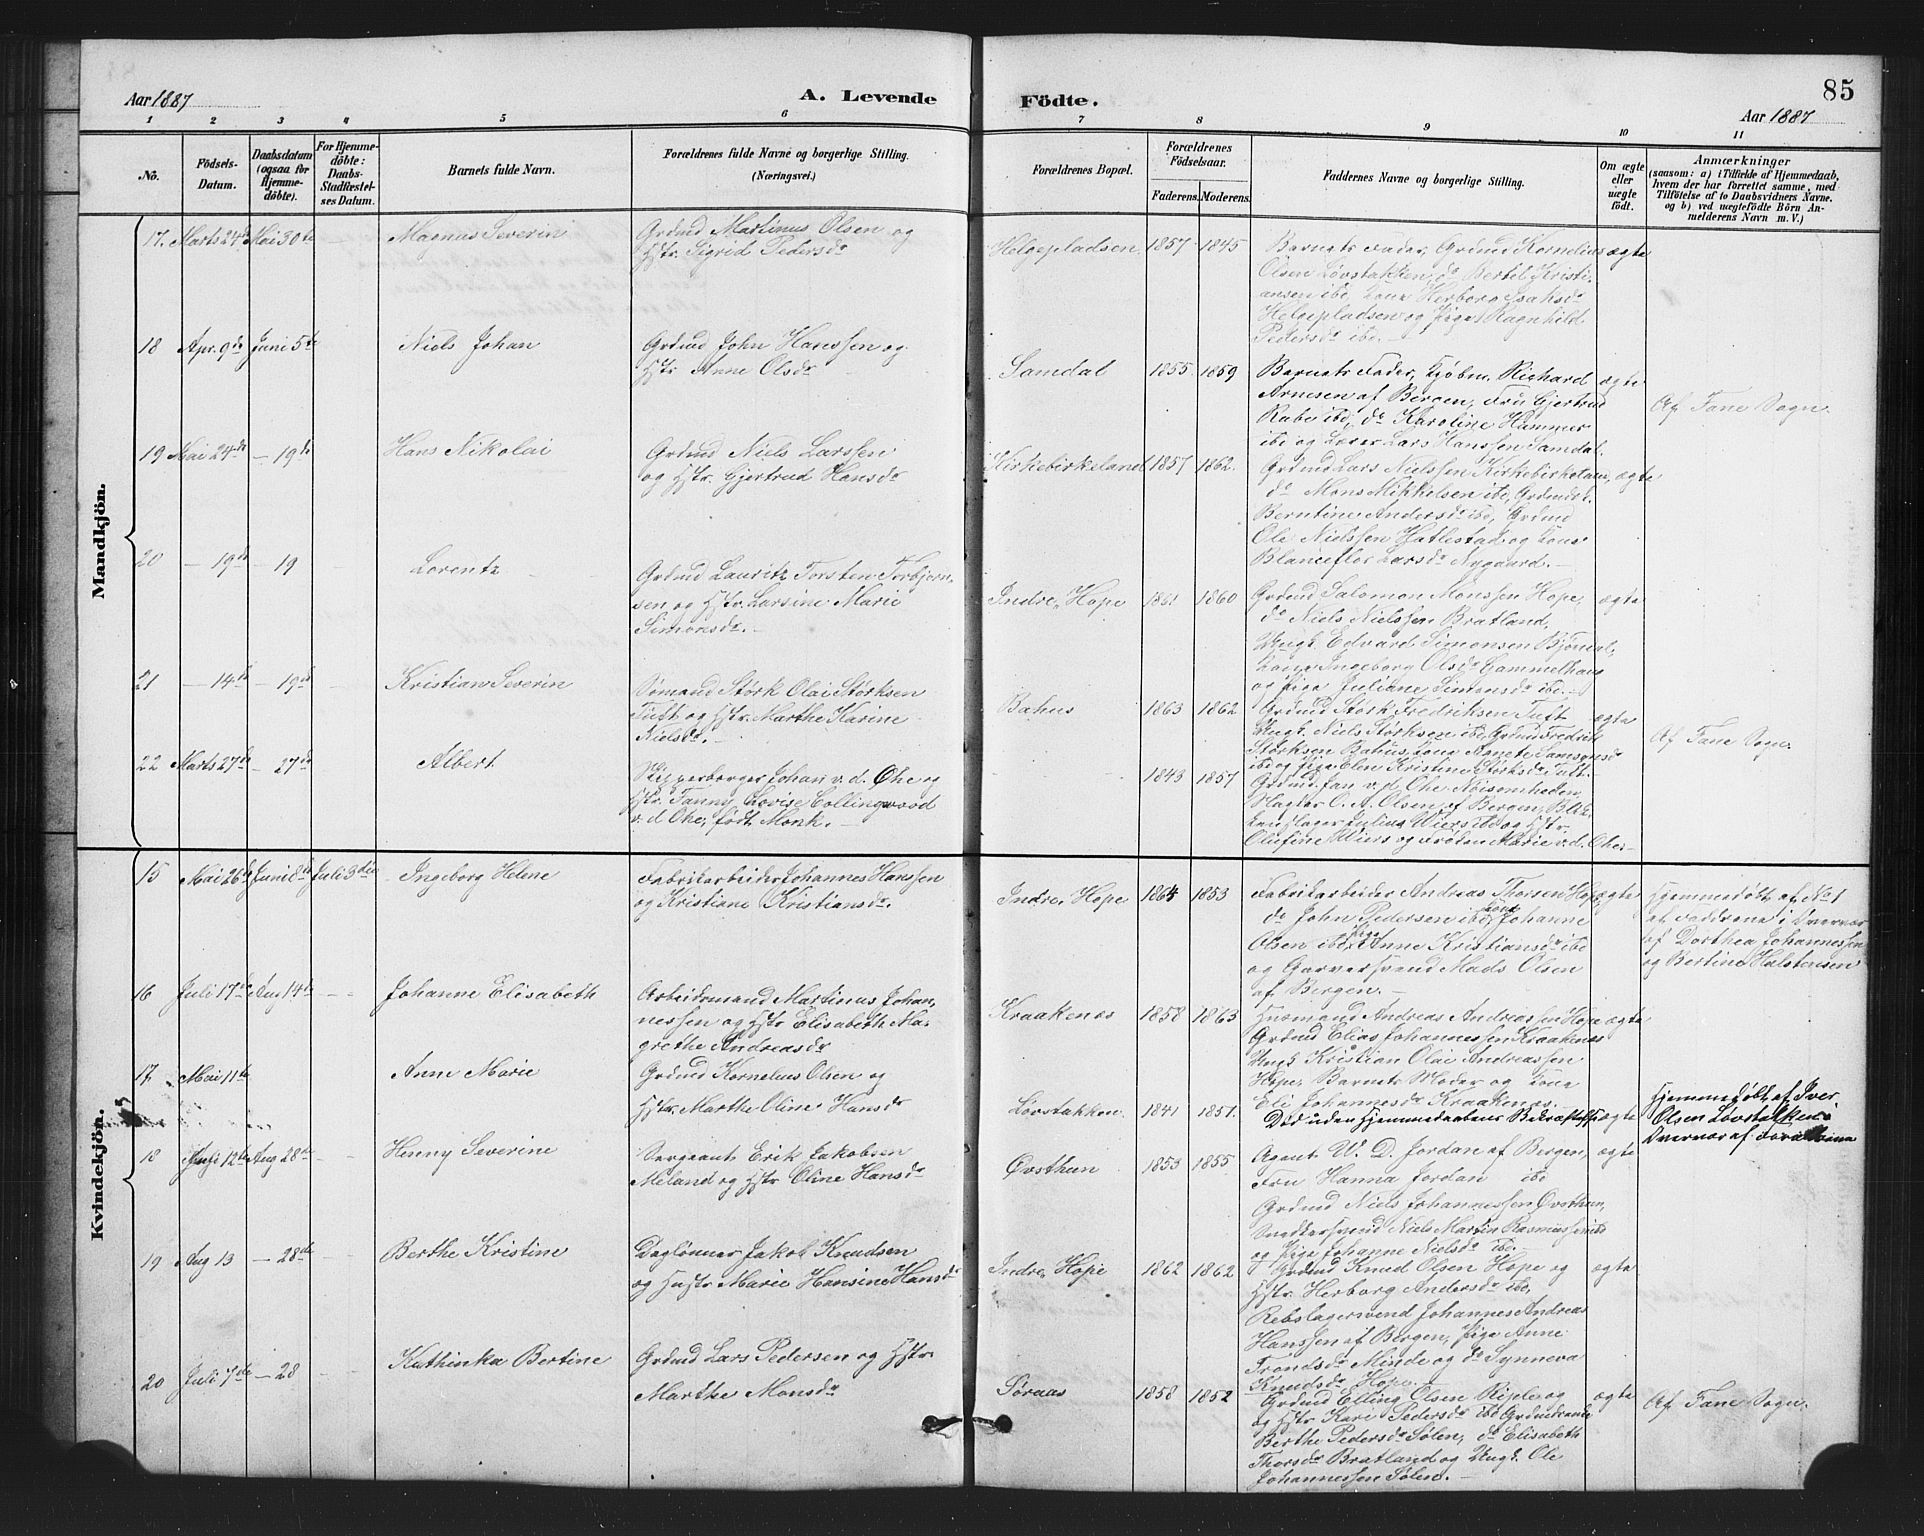 Aar 1887
A. Levende
Födte.
85
Aar 1887
1 2 3 4 5 6 7 8 9 10 11
No.
Födsels-
Datum.
Daabsdatum
(ogsaa for
Hjemme-
döbte).
For Hjemme-
döbte:
Daabs-
Stadfæstel-
ses Datum.
Barnets fulde Navn.
Forældrenes fulde Navne og borgerlige Stilling.
(Næringsvei.)
Forældrenes Bopæl.
Forældrenes
Födselsaar.
Faderens. Moderens.
Faddernes Navne og borgerlige Stilling.
Om ægte
eller
uægte
födt.
Anmærkninger
(saasom: a) i Tilfælde af Hjemmedaab,
hvem der har forrettet samme, med
Tilföielse af to Daabsvidners Navne.
og b) ved uægtefödte Börn An-
melderens Navn m. V.)
Mandkjön.
17. Marts 24de Mai 30te
Magnus Severin
Grdmd Martinus Olsen og
Hstr. Sigrid Pedersdr
Helgepladsen 1857 1845
Barnets Fader, Grdmd Kornelius
Olsen Løvstakken, do Bertel Kristi-
ansen ibd, Kone Herborg Isaksdr
Helgepladsen og Pige Ragnhild
Pedersdr ibd.
ægte
18 Apr. 9de Juni 5te
Niels Johan
Grdmd John Hanssen og
Hstr Anne Olsdr
Samdal 1855 1859
Barnets Fader, Kjøbm. Richard
Arnesen af Bergen, Fru Gjertrud
Rabe ibd, do Karoline Hammer
ibd og Lærer Lars Hanssen Samdal.
ægte
Af Fane Sogn.
19 Mai 24de — 19de
Hans Nikolai
Grdmd Niels Larssen
og Hstr. Gjertrud Hansdr
Kirkebirkeland 1857 1862.
Grdmd Lars Nielssen Kirkebirkeland,
do Mons Mikkelsen ibd, Grdmdsk.
Berntine Andersdr ibd, Grdmd
Ole Nielssen Hatlestad og Kone
Blanceflor Larsdr Nygaard.
ægte
20 — 19de — 19
Lorentz
Grdmd Lauritz Torsten Torbjørn-
sen og Hstr. Larsine Marie
Simonsdr.
Indre Hope 1861 1860
Grdmd Salomon Monssen Hope,
do Niels Nielssen Bratland,
Ungk. Edvard Simonsen Bjøndal,
Kone Ingeborg Olsdr Gammelhaug
og Pige Juliane Simonsdr ibd.
ægte
21 — 14de — 19de
Kristian Severin
Sømand Størk Olai Størksen
Tuft og Hstr. Marthe Karine
Nielsdr.
Bahus 1863 1862
Grdmd Størk Fredriksen Tuft
Ungk. Niels Størksen ibd, Grdmd Fredrik
Størksen Bahus, Kone Agnete Samsonsdr
ibd og Pige Elen Kristine Størksdr Tuft.
ægte
Af Fane Sogn.
22 Marts 27de — 27de
Albert
Skipperborger Johan v. d. Ohe og
Hstr. Fanny Lovise Collingwood
v. d. Ohe, født Monk.
1843 1857
Grdmd Jan v. d. Ohe Nøisomheden,
Slagter O. A. Olsen af Bergen,
Juling Wiers ibd og Hstr.
Olufine Wiers og Frøken Marie v. d. Ohe.
Kvindekjön.
15 Mai 26de Juni 8de Juli 3die
Ingeborg Helene
Fabrikarbeider Johannes Hanssen
og Kristiane Kristiansdr.
Indre Hope 1864 1853
Fabrikarbeider Andreas Thorsen Hope
do John Pedersen ibd, Kone Johanne
Olsen ibd, Pige Anne Kristiansdr ibd
og Garversvend Mads Olsen
af Bergen.
ægte
Hjemmedøbt af No 1
af Fadderne i Overvær
af Dorthea Johannessen
og Bertine Halstensen
16 Juli 17de Aug 14de
Johanne Elisabeth
Arbeidsmand Martinus Johan-
nessen og Hstr Elisabeth Ma-
grethe Andreasdr
Kraakenæs 1858 1863
Husmand Andreas Andreassen Hope
Grdmd Elias Johannessen Kraakenæs
Ungk Kristian Olai Andreassen
Hope, Barnets Moder og Kone
Eli Johannesdr Kraakenæs.
ægte
17 Mai 11te
Anne Marie
Grdmd Kornelius Olsen og
Hstr. Marthe Oline Hansdr
Løvstakken 1841 1851.
Død uden Hjemmedaabens Bekræftelse
ægte
Hjemmedøbt af Iver
Olsen Løvstakken i
Overvær af Forældrene
18 Juli 12te Aug 28de
Henny Severine
Sergeant Erik Jakobsen
Meland og Hstr Oline Hansdr
Øvsthun 1853 1855
Agent W. D. Jordan af Bergen,
Fru Hanna Jordan ibd
Grdmd Niels Johannessen Øvsthun,
Snedkersvend Niels Martin Rasmussen ibd
og Pige Johanne Nielsdr ibd.
ægte
19 Aug 13 — 28de
Berthe Kristine
Daglønner Jakob Knudsen
og Hustr Marie Hansine Hansdr
Indre Hope 1862 1862
Grdmd Knud Olsen Hope og
Hstr. Herborg Andersdr ibd,
Rebslagersvend Johannes Andreas
Hanssen af Bergen, Pige Anne
Trondsdr Minde og do Synneva
Knudsdr Hope.
ægte
20 Juli 7de — 28
Kathinka Bertine
Grdmd Lars Pedersen og Hstr.
Marthe Monsdr
Søraas 1858 1852
Grdmd Elling Olsen Riple og
og Hstr Kari Pedersdr ibd Grdmdsenke
Berthe Pedersdr Sølen, do Elisabeth
Thorsdr Bratland og Ungk. Ole
Johannessen Sølen.
ægte
Af Fane Sogn.